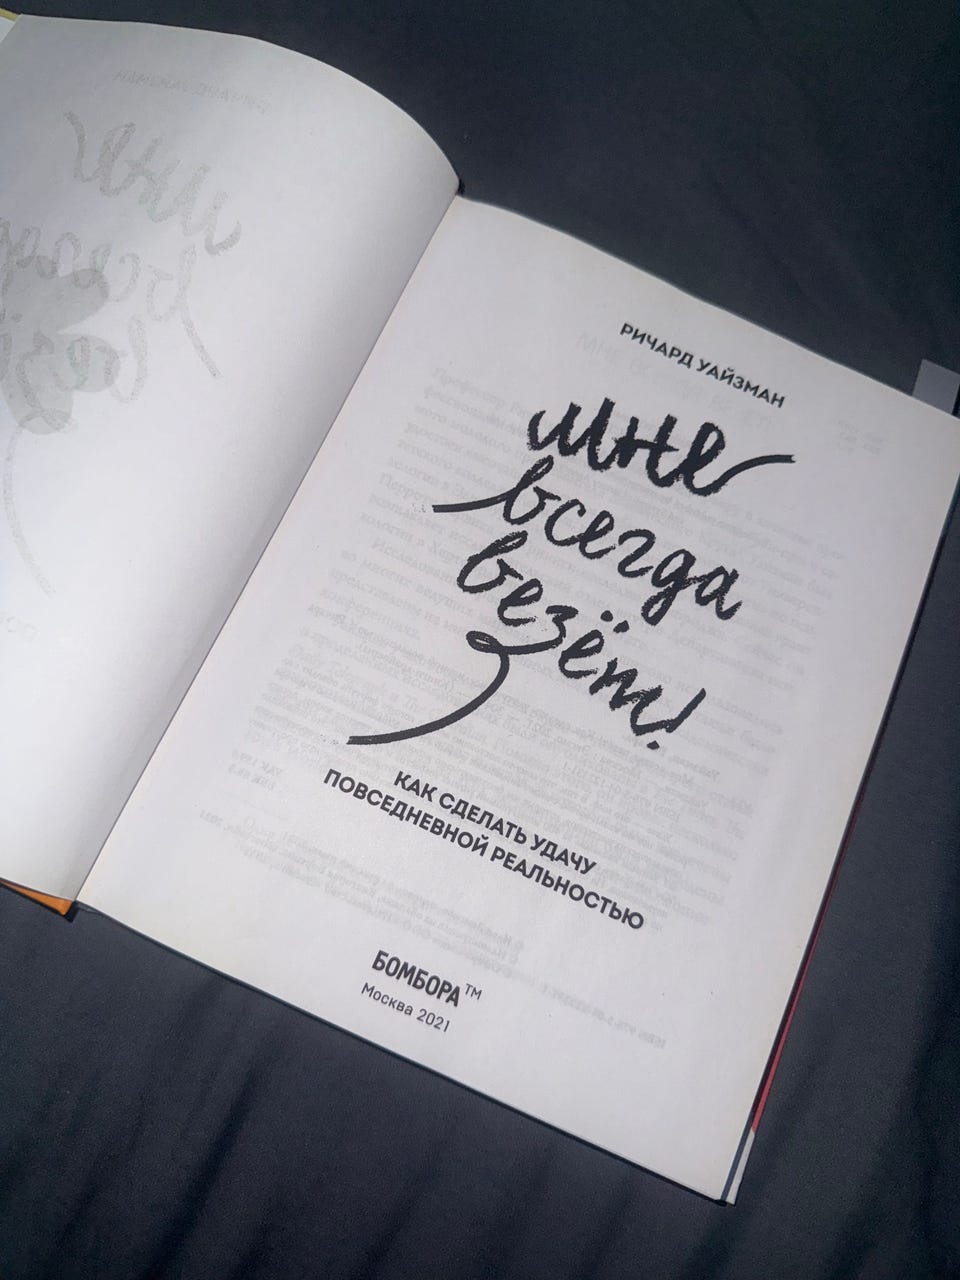 РИЧАРД УАЙЗМАН
мне
всегда
везёт!
КАК СДЕЛАТЬ УДАЧУ
ПОВСЕДНЕВНОЙ РЕАЛЬНОСТЬЮ
БОМБОРА™
Москва 2021